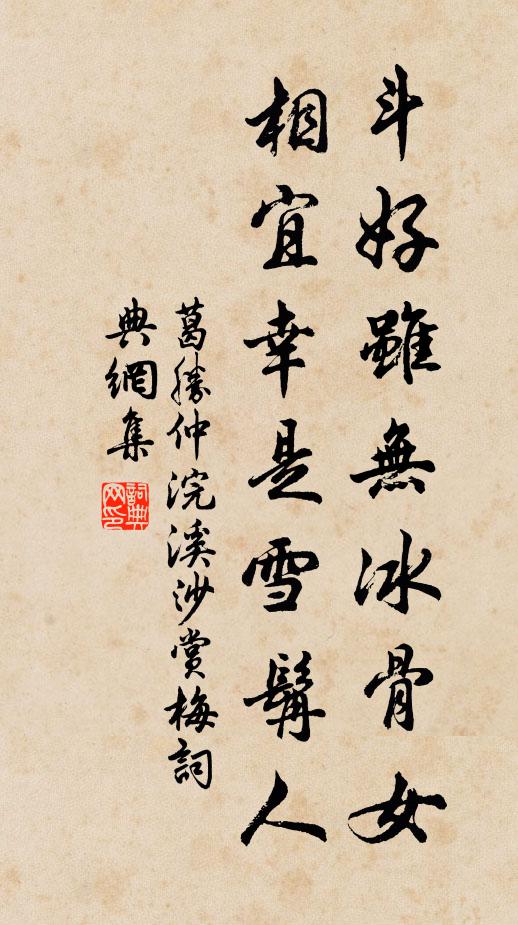 斗好雖無冰骨女
相宜幸是雪髯人
葛勝仲浣溪沙賞梅詞
典網集
詞典網印